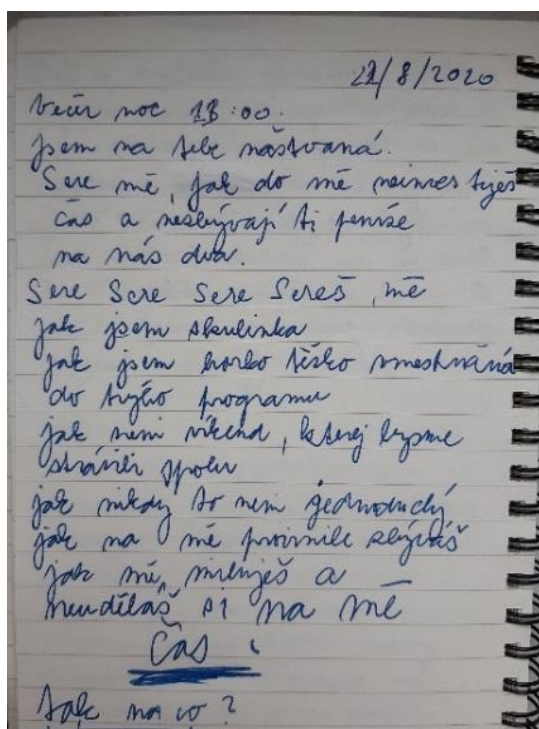 22/8/2020
Večer noc 18:00.
jsem na tebe naštvaná.
Sere mě, jak do mě neinvestiješ
čas a nezbývají ti peníze
na nás dva.
Sere Sere Sere Sereš mě
jak jsem skulinka
jak jsem horko těžko vmestnaná
do tvýho programu
jak neni víkend, kterej bysme
strávili spolu
jak nikdy to neni jednoduchý
jak na mě provinile zbýváš
jak mě miluješ a
neuděláš si na mě
čas
tak na co?